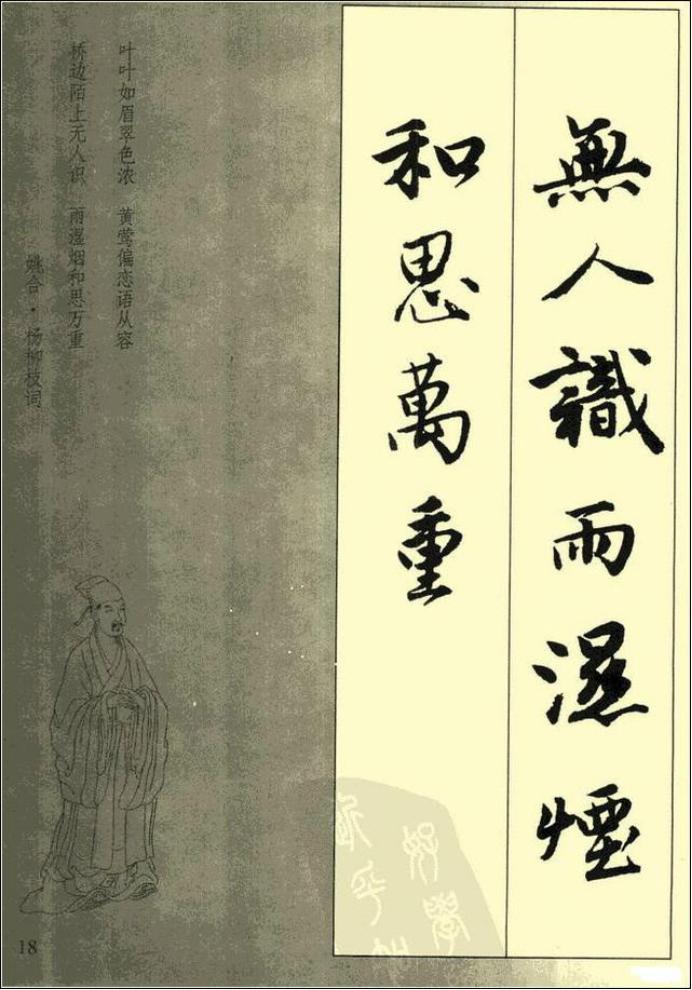 無人識雨濕煙
和思萬重
叶叶如眉翠色浓　黄莺偏恋语从容
桥边陌上无人识　雨湿烟和思万重
姚合·杨柳枝词
18
好學